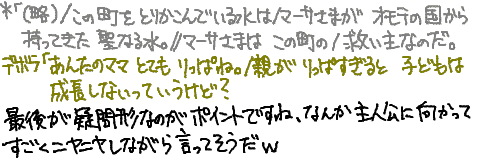 *「(略)/この町をとりかこんでいる水は/マーサさまが オモテの国から
持ってきた 聖なる水。//マーサさまは この町の/救い主なのだ。
デボラ「あんたのママ とても りっぱね。/親が りっぱすぎると 子どもは
成長しないって いうけど?
最後が疑問形なのが ポイントですね、なんか主人公に向かって
すごくニヤニヤしながら言ってそうだw